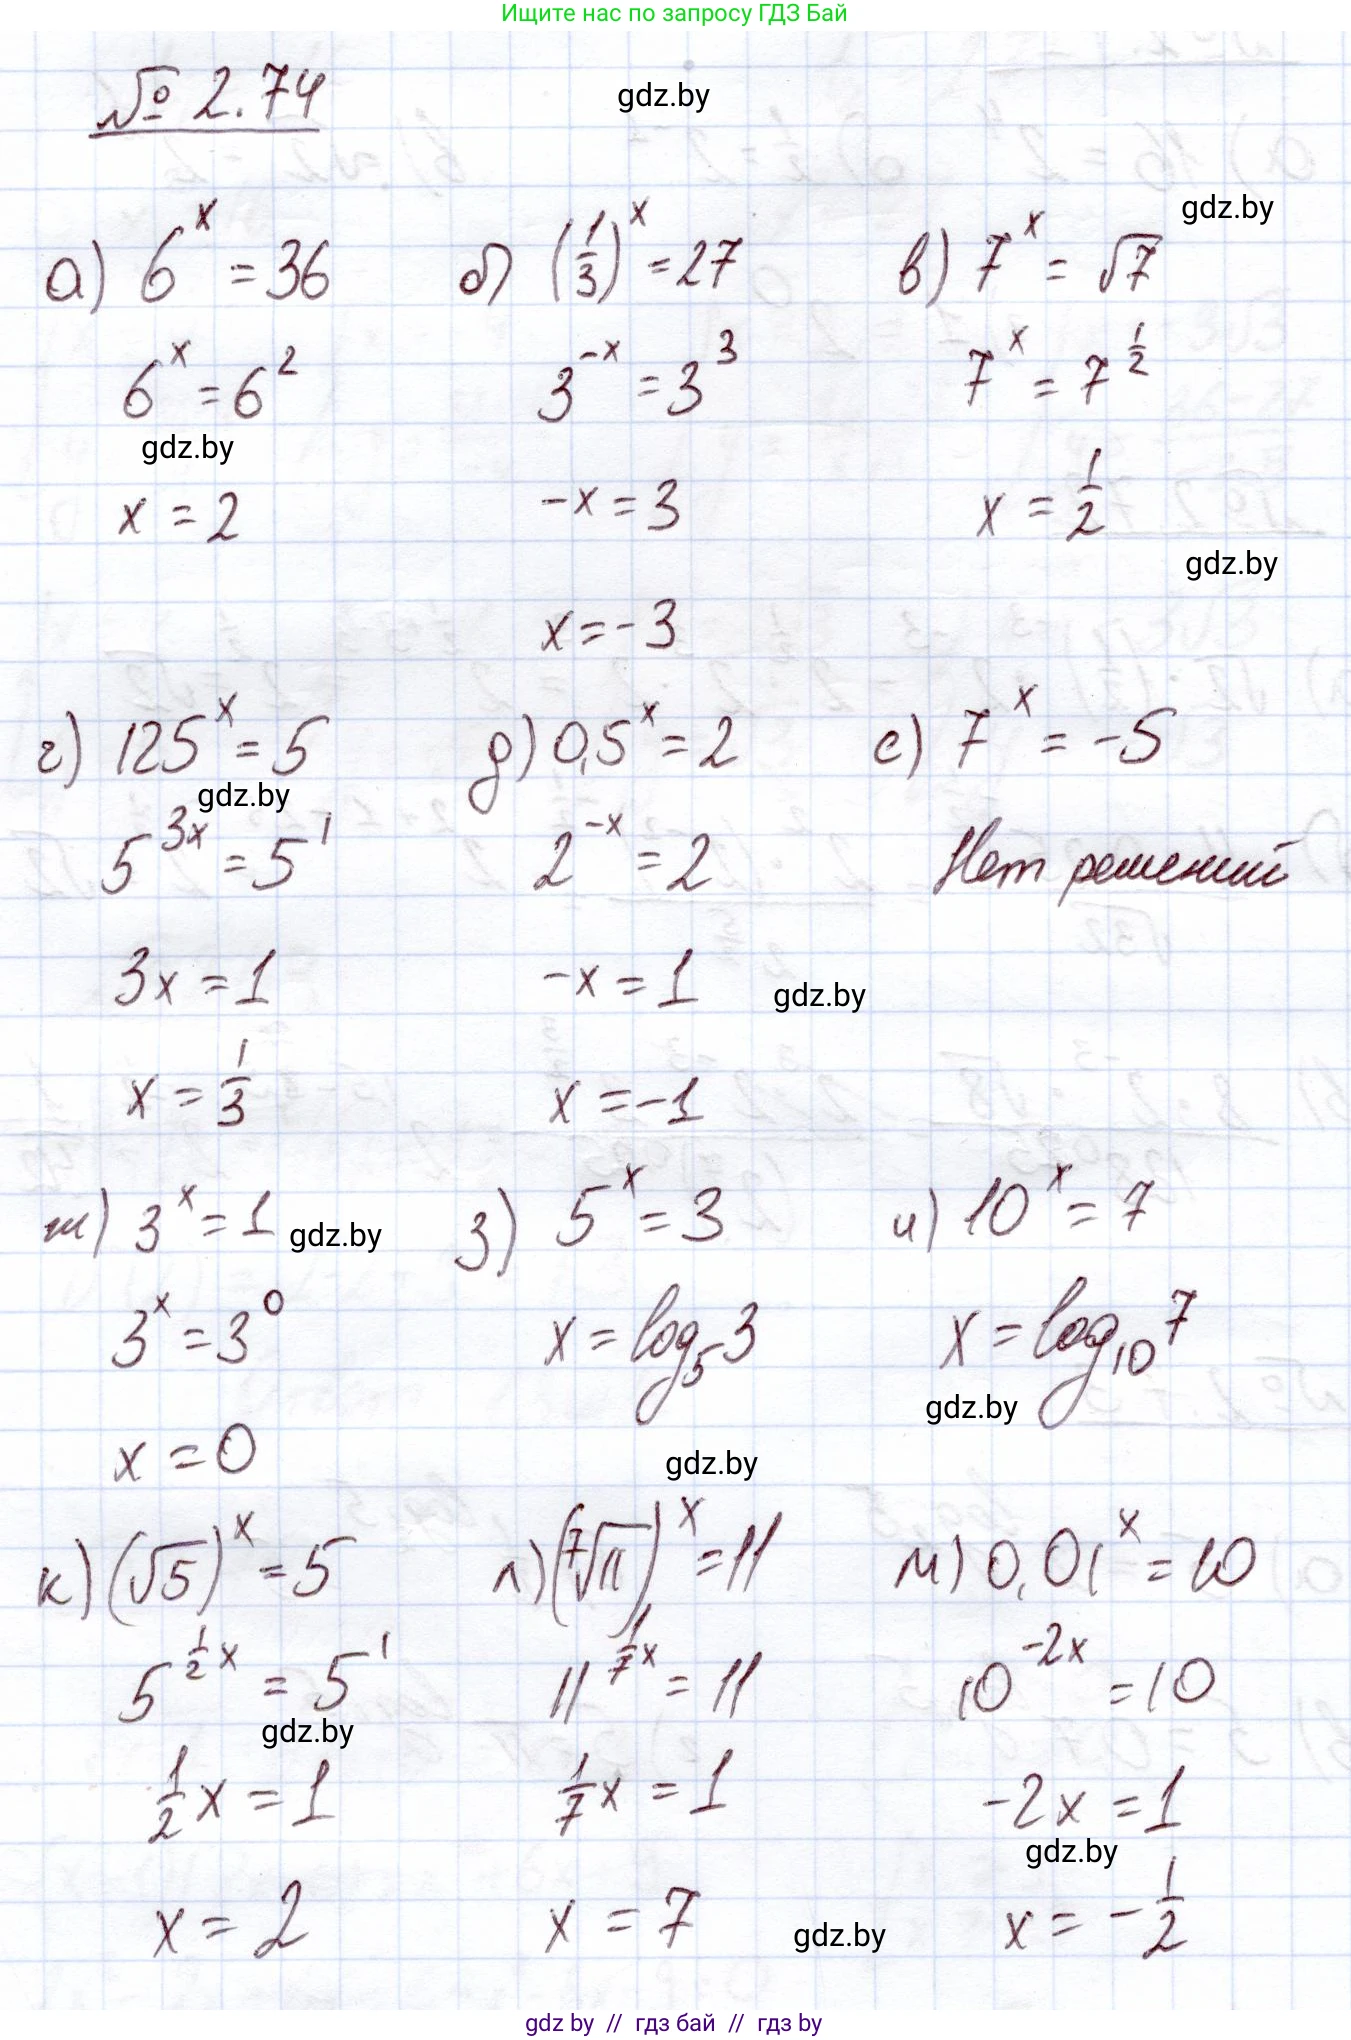 Ищите нас по запросу ГДЗ Бай
№ 2.74
gdz.by
gdz.by
а) 6^x = 36
6^x = 6^2
gdz.by
x = 2
б) (1/3)^x = 27
3^{-x} = 3^3
-x = 3
x = -3
в) 7^x = √7
7^x = 7^{1/2}
x = 1/2
gdz.by
г) 125^x = 5
gdz.by
5^{3x} = 5^1
3x = 1
x = 1/3
д) 0,5^x = 2
2^{-x} = 2
-x = 1
gdz.by
x = -1
е) 7^x = -5
Нет решений
ж) 3^x = 1
gdz.by
3^x = 3^0
x = 0
з) 5^x = 3
x = log_5 3
gdz.by
и) 10^x = 7
x = log_{10} 7
gdz.by
к) (√5)^x = 5
5^{1/2 x} = 5^1
gdz.by
1/2 x = 1
x = 2
л) (⁷√11)^x = 11
11^{1/7 x} = 11
1/7 x = 1
x = 7
gdz.by
м) 0,01^x = 10
10^{-2x} = 10
-2x = 1
gdz.by
x = -1/2
gdz by // гдз бай // гдз by